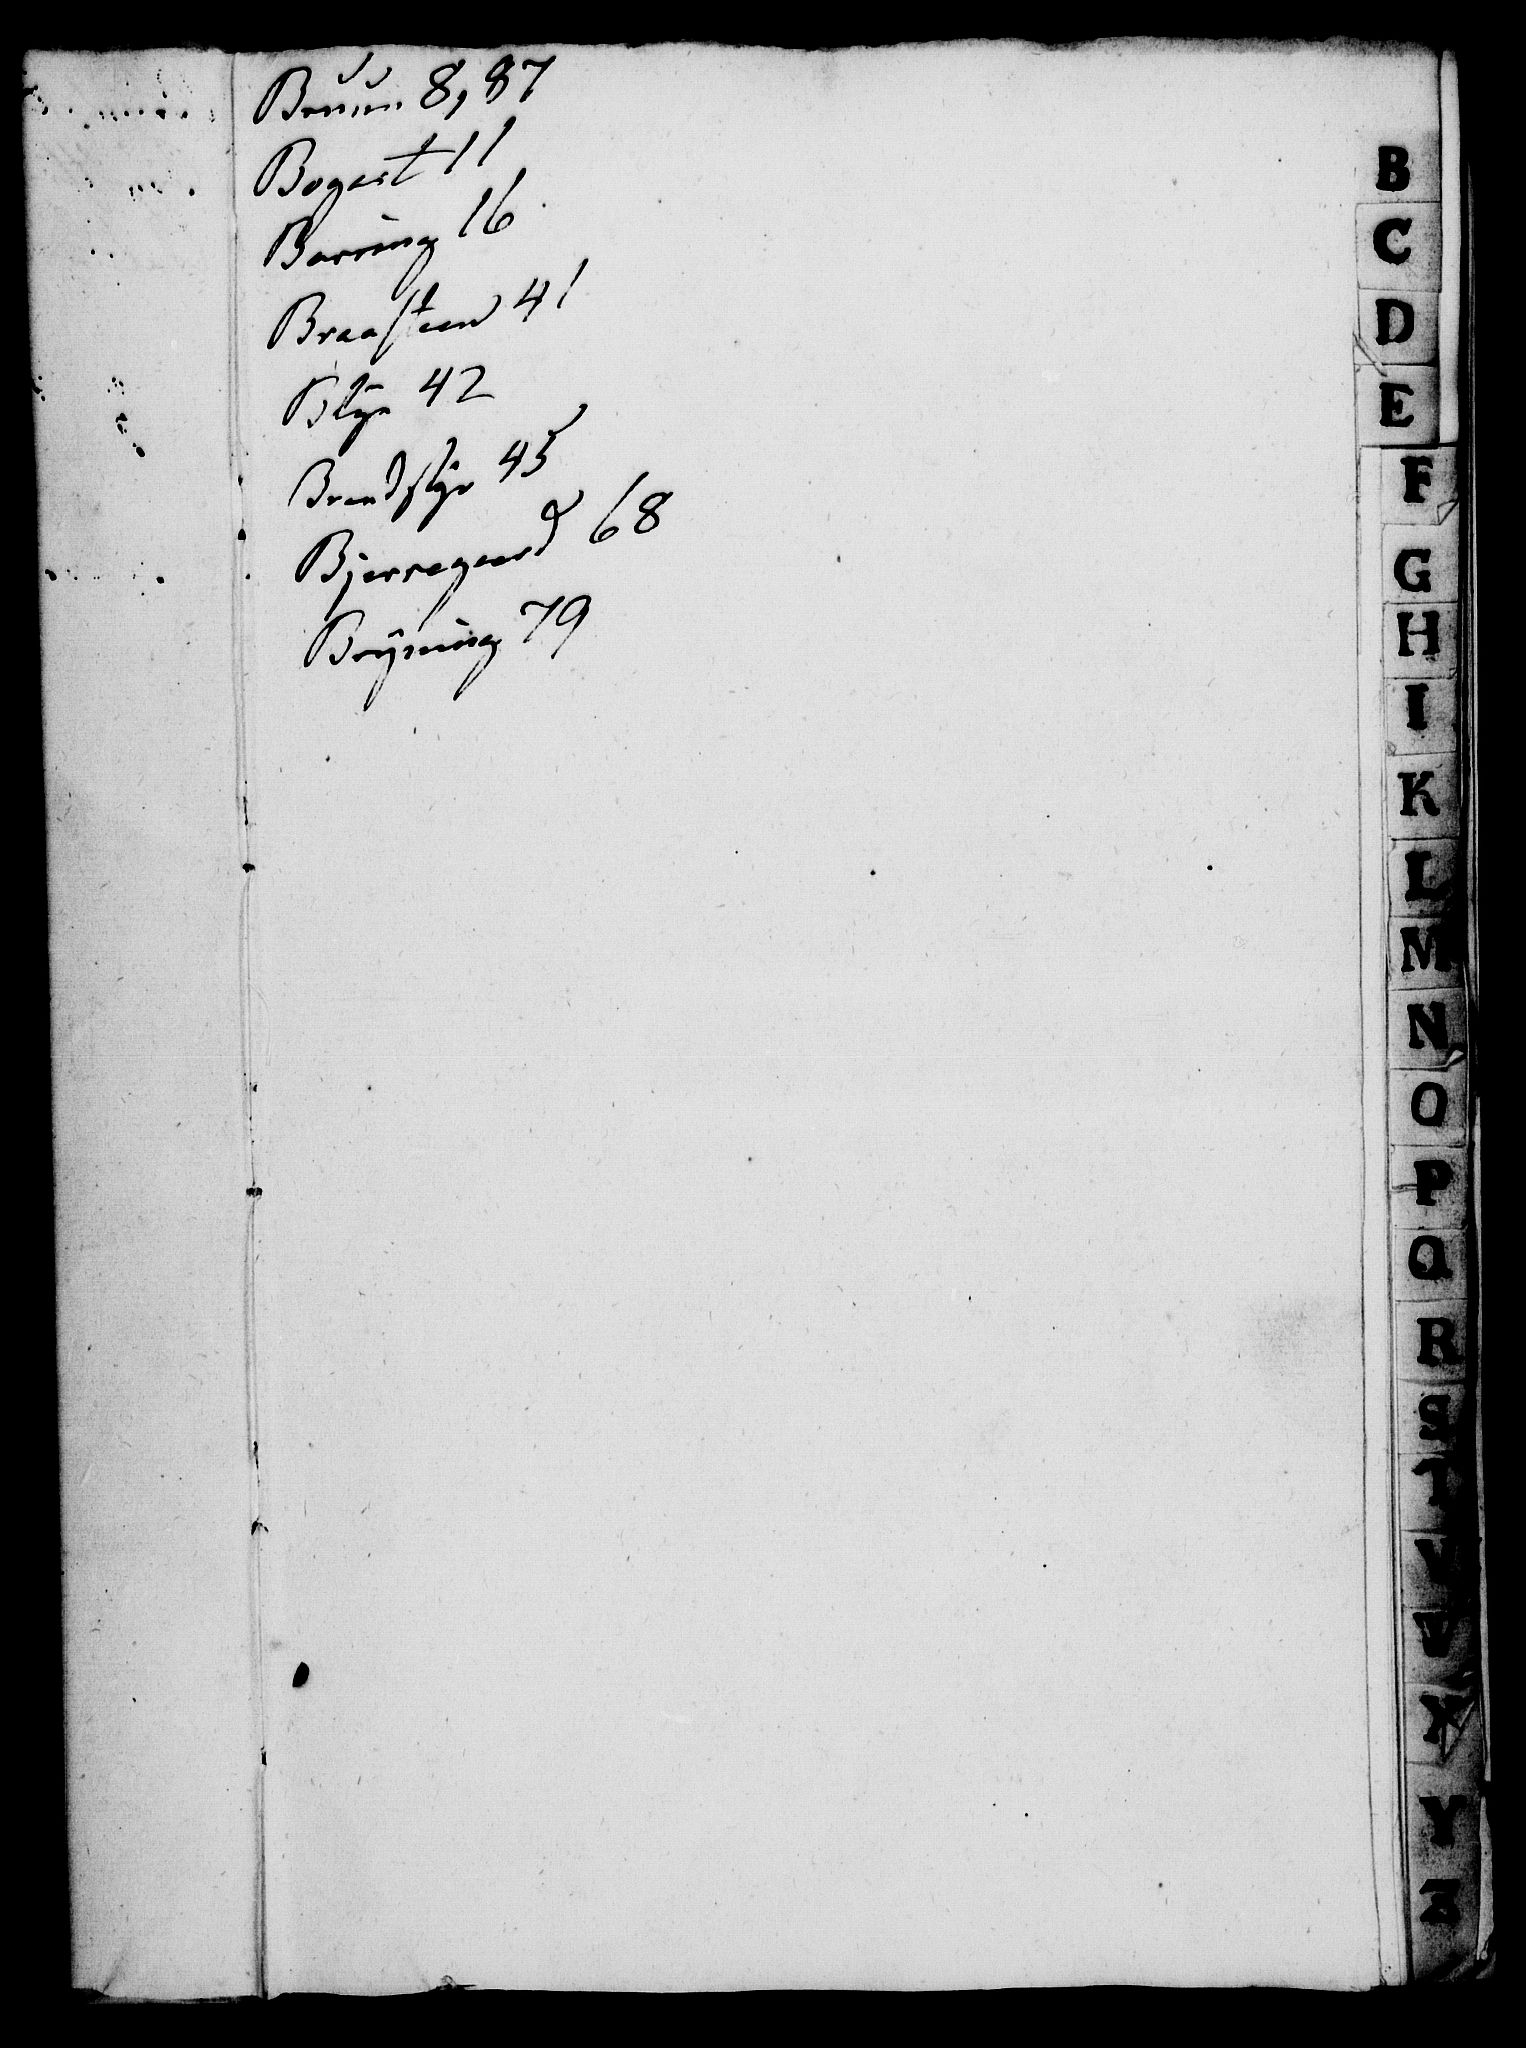 Bruun 8, 87
Bogart 11
Barring 16
Braasteen 41
Blÿe 42
Brandstÿr 45
Bjerregaard 68
Brÿning 79
B
C
D
E
F
G
H
I
K
L
M
N
O
P
Q
R
S
T
V
X
Y
Z